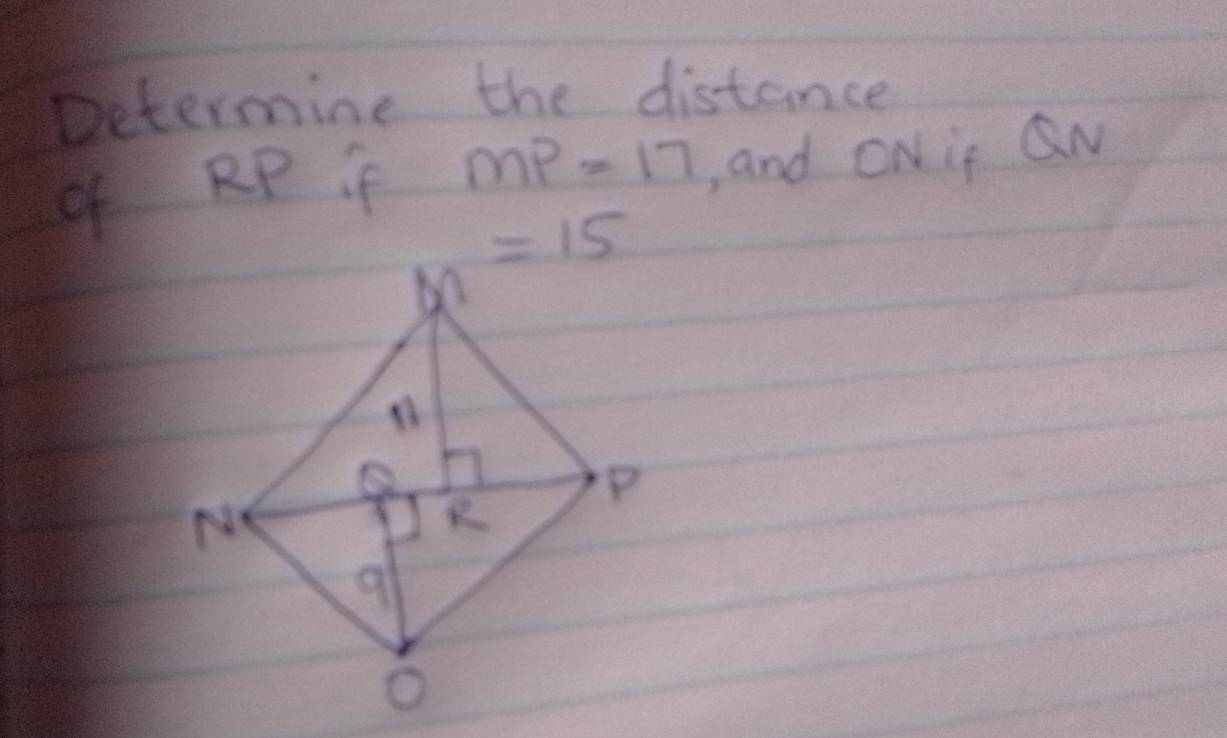 Determine the distance
of RP if MP = 17, and ON if QN
= 15
M
11
Q
N
R
P
9
O